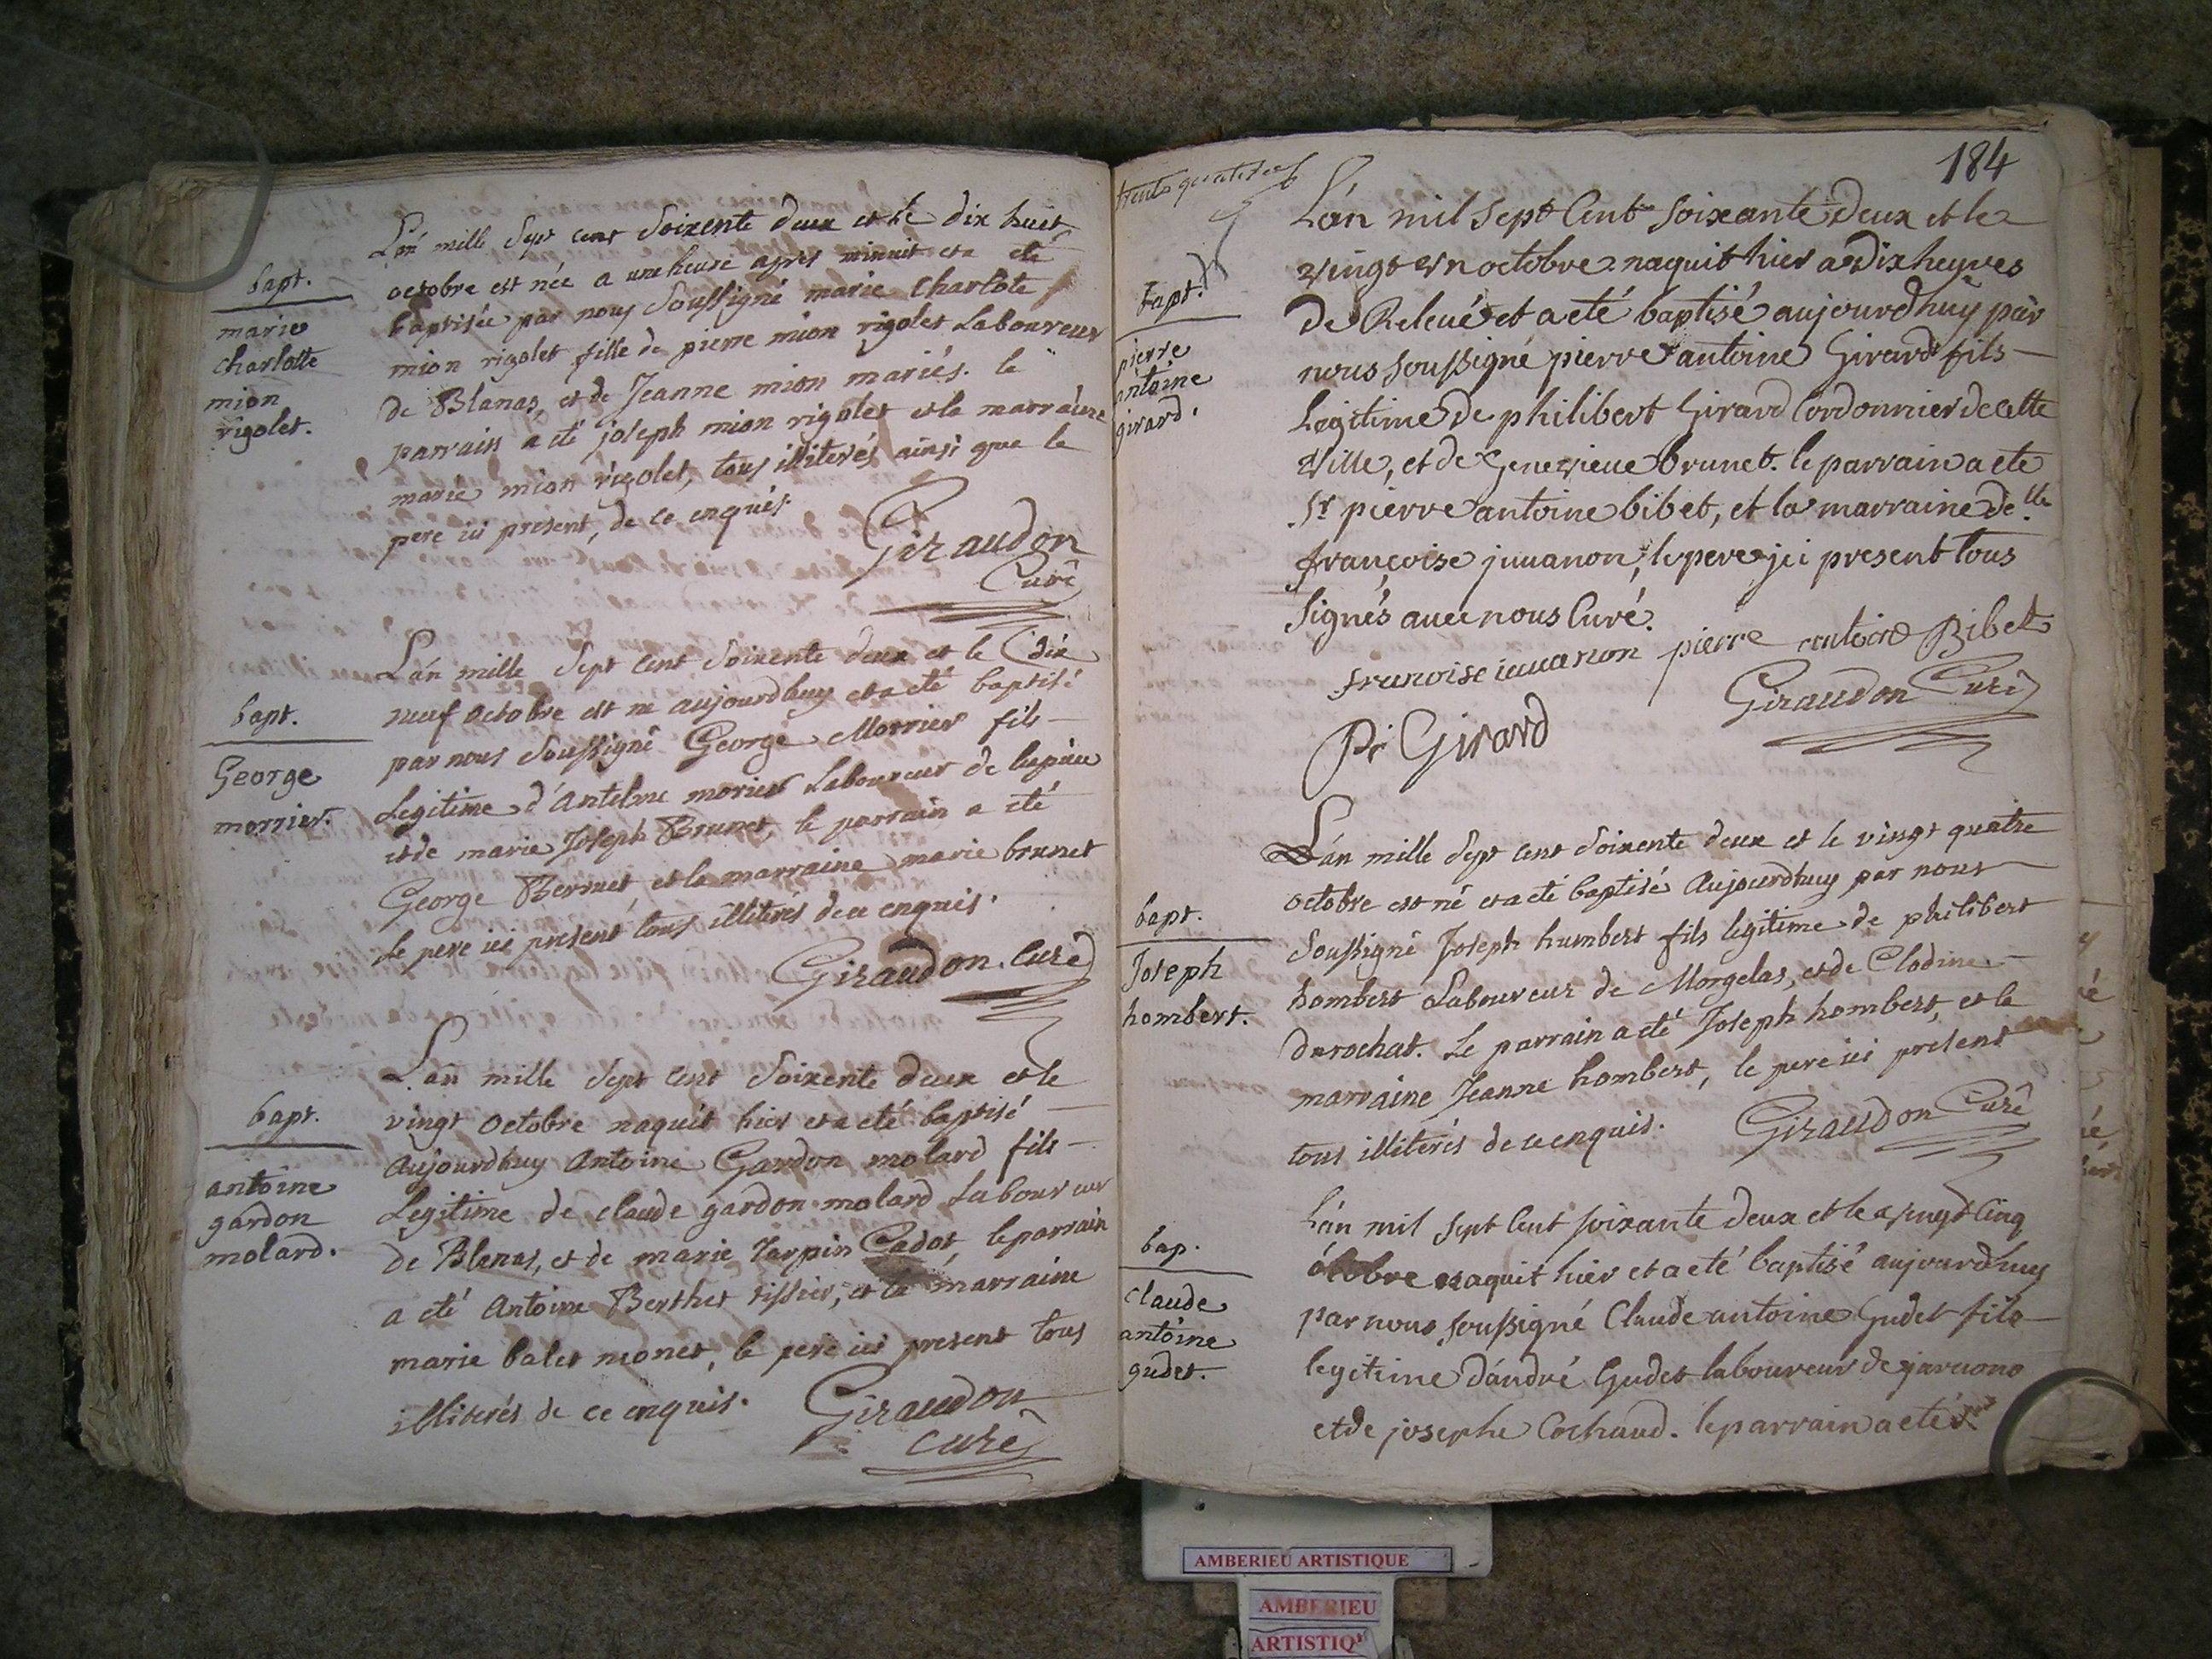 bapt.
marie
charlotte
mion
rigolet.
L'an mille sept cent soixente deux et le dix huit
octobre est née a une heure apres minuit et a eté
baptisée par nous soussigné marie charlote
mion rigolet fille de pierre mion rigolet Laboureur
de Blanas, et de Jeanne mion mariés. le
parrain a eté joseph mion rigolet et la marraine
marie mion rigolet, tous illiterés ainsi que le
pere ici present, de ce enquis.
Giraudon
Curé
bapt.
George
morrier.
L'an mille sept cent soixente deux et le dix
neuf octobre est ne aujourdhuy et a eté baptisé
par nous soussigné George Morrier fils
Legitime d'Antelme morier Laboureur de
et de marie Joseph Brunet, le parrain a eté
George Bernet, et la marraine marie brunet
le pere ici present tous illiterés de ce enquis.
Giraudon. Curé
bapt.
antoine
gardon
molard.
L'an mille sept cent soixente deux et le
vingt octobre naquit hier et a eté baptisé
Aujourdhuy Antoine Gardon molard fils
Legitime de claude gardon molard Laboureur
de Blanas, et de marie Tarpin Cadot, le parrain
a eté Antoine Berthet tissier, et la marraine
marie balet monet, le pere ici present tous
illiterés de ce enquis.
Giraudon
curé
184
bapt.
pierre
antoine
girard.
L'an mil sept Cent soixante deux et le
vingt un octobre naquit hier a dix heures
de Releué et a eté baptisé aujourdhuy par
nous soussigné pierre antoine Girard fils
Legitime de philibert Girard Cordonnier de cette
Ville, et de Genevieue brunet. le parrain a ete
Sr pierre antoine bibet, et la marraine delle
françoise juuanon, le pere jci present tous
signés auec nous Curé.
francoise iuuanon pierre antoine Bibet
Giraudon Curé
Pr Girard
bapt.
Joseph
hombert.
L'an mille sept cent soixente deux et le vingt quatre
octobre est né et a eté baptisé Aujourdhuy par nous
soussigné Joseph humbert fils legitime de philibert
hombert Laboureur de Morgelas, et de Clodine
durochat. Le parrain a eté Joseph hombert, et la
marraine Jeanne hombert, le pere ici present
tous illiterés de ce enquis.
Giraudon Curé
bap.
claude
antoine
gudet.
L'an mil sept Cent soixante deux et le vingt Cinq
octobre naquit hier et a eté baptisé aujourdhuy
par nous soussigné Claude antoine Gudet fils
legitime d'andré Gudet laboureur de jaruono
et de josephe Cochaud. le parrain a eté
AMBERIEU ARTISTIQUE
AMBERIEU
ARTISTIQ